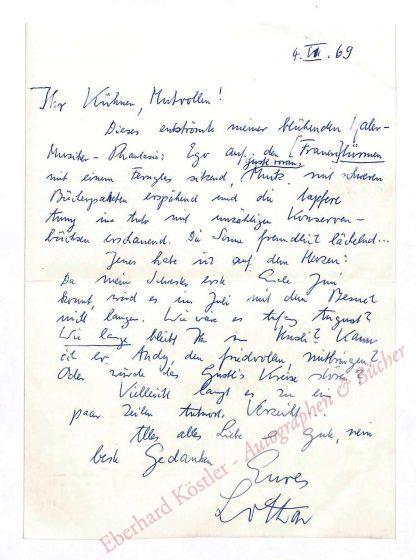 4. VII. 69
Ihr Kühnen, Mutvollen!
Dieses entströmte meiner blühenden Maler-
Musiker-Phantasie: Ego auf den [Frauen]türmen
mit einem sitzend, mit schweren
Bücherpaketen erspähend und die tapfere
und unzähligen Konserven-
büchsen erschauend. Die Sonne freundlich lächelnd...
Jenes habe ich auf dem Herzen:
Da meine Schwester erst Ende Juni
kommt, wird es im Juli mit dem Besuch
nicht langen. Wie wäre es Anfang August?
Wie lange bleibt Ihr in Kann
ich er, Andy, den friedvollen, mitbringen?
Oder würde das Kreise stören?
Vielleicht langt es zu ein
paar Zeilen Antwort. Verzeiht!
Alles alles Liebe – Gute, mein
beste Gedanken
Eures
Lothar
Eberhard Köstler - Autographen & Bücher